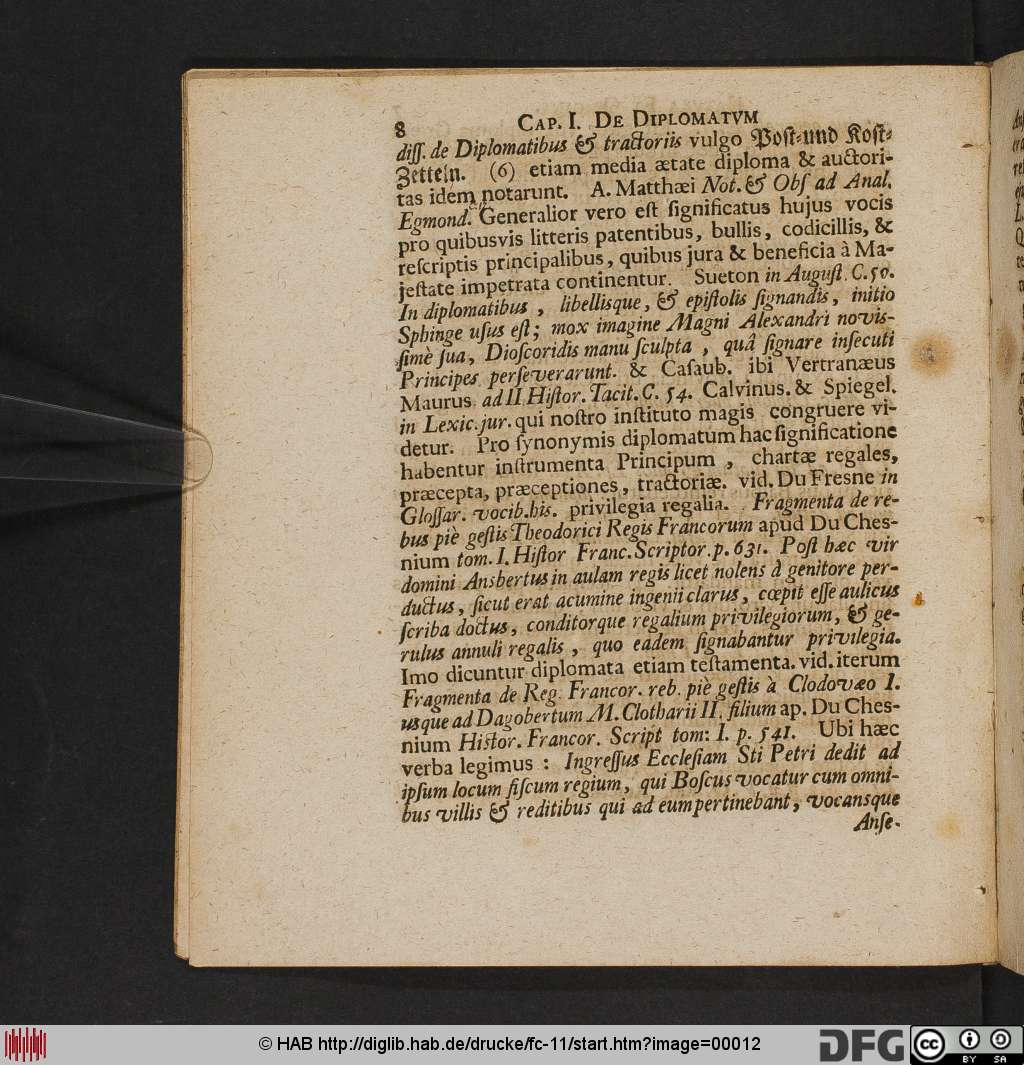 8 CAP. I. DE DIPLOMATVM
diſſ. de Diplomatibus & tractoriis vulgo Poſt- und Koſt-
Zetteln. (6) etiam media ætate diploma & auctori-
tas idem notarunt. A. Matthæi Not. & Obſ ad Anal.
Egmond. Generalior vero eſt ſignificatus hujus vocis
pro quibusvis litteris patentibus, bullis, codicillis, &
reſcriptis principalibus, quibus jura & beneficia à Ma-
jeſtate impetrata continentur. Sueton in Auguſt. C. 50.
In diplomatibus, libellisque, & epiſtolis ſignandis, initio
Sphinge uſus eſt; mox imagine Magni Alexandri novis-
ſimè ſua, Dioſcoridis manu ſculpta, quâ ſignare inſecuti
Principes perſeverarunt. & Caſaub. ibi Vertranæus
Maurus ad II Hiſtor. Tacit. C. 54. Calvinus. & Spiegel.
in Lexic. jur. qui noſtro inſtituto magis congruere vi-
detur. Pro ſynonymis diplomatum hac ſignificatione
habentur inſtrumenta Principum, chartæ regales,
præcepta, præceptiones, tractoriæ. vid. Du Fresne in
Gloſſar. vocib. his. privilegia regalia. Fragmenta de re-
bus piè geſtis Theodorici Regis Francorum apud Du Ches-
nium tom. I. Hiſtor Franc. Scriptor. p. 631. Poſt hæc vir
domini Ansbertus in aulam regis licet nolens à genitore per-
ductus, ſicut erat acumine ingenii clarus, cœpit eſſe aulicus
ſcriba doctus, conditorque regalium privilegiorum, & ge-
rulus annuli regalis, quo eadem ſignabantur privilegia.
Imo dicuntur diplomata etiam teſtamenta. vid. iterum
Fragmenta de Reg. Francor. reb. piè geſtis à Clodovæo I.
usque ad Dagobertum M. Clotharii II. filium ap. Du Ches-
nium Hiſtor. Francor. Script tom: I. p. 541. Ubi hæc
verba legimus: Ingreſſus Eccleſiam Sti Petri dedit ad
ipſum locum fiſcum regium, qui Boſcus vocatur cum omni-
bus villis & reditibus qui ad eum pertinebant, vocansque
Anſe-
© HAB http://diglib.hab.de/drucke/fc-11/start.htm?image=00012
DFG
cc BY SA